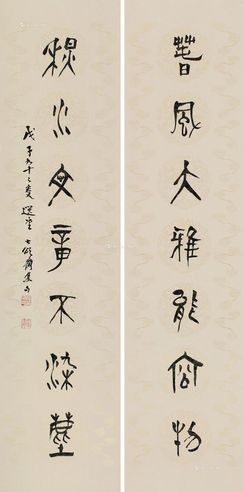 春風大雅能容物
秋水文章不染塵
戊子九十二叟選堂